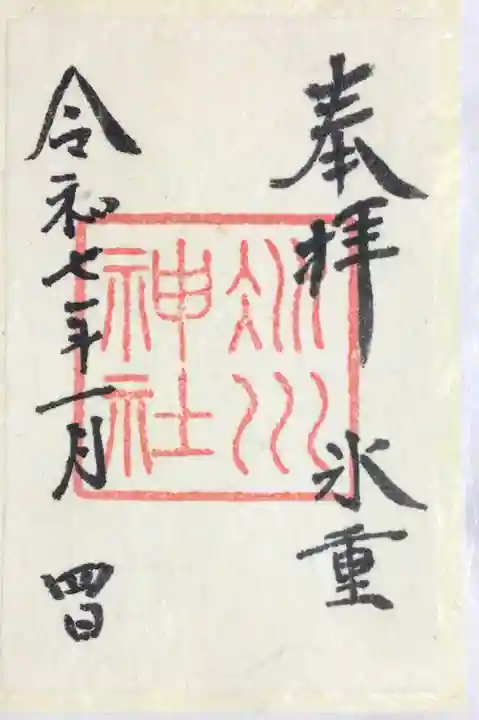 奉拝 氷重
氷川
神社
令和七年一月四日